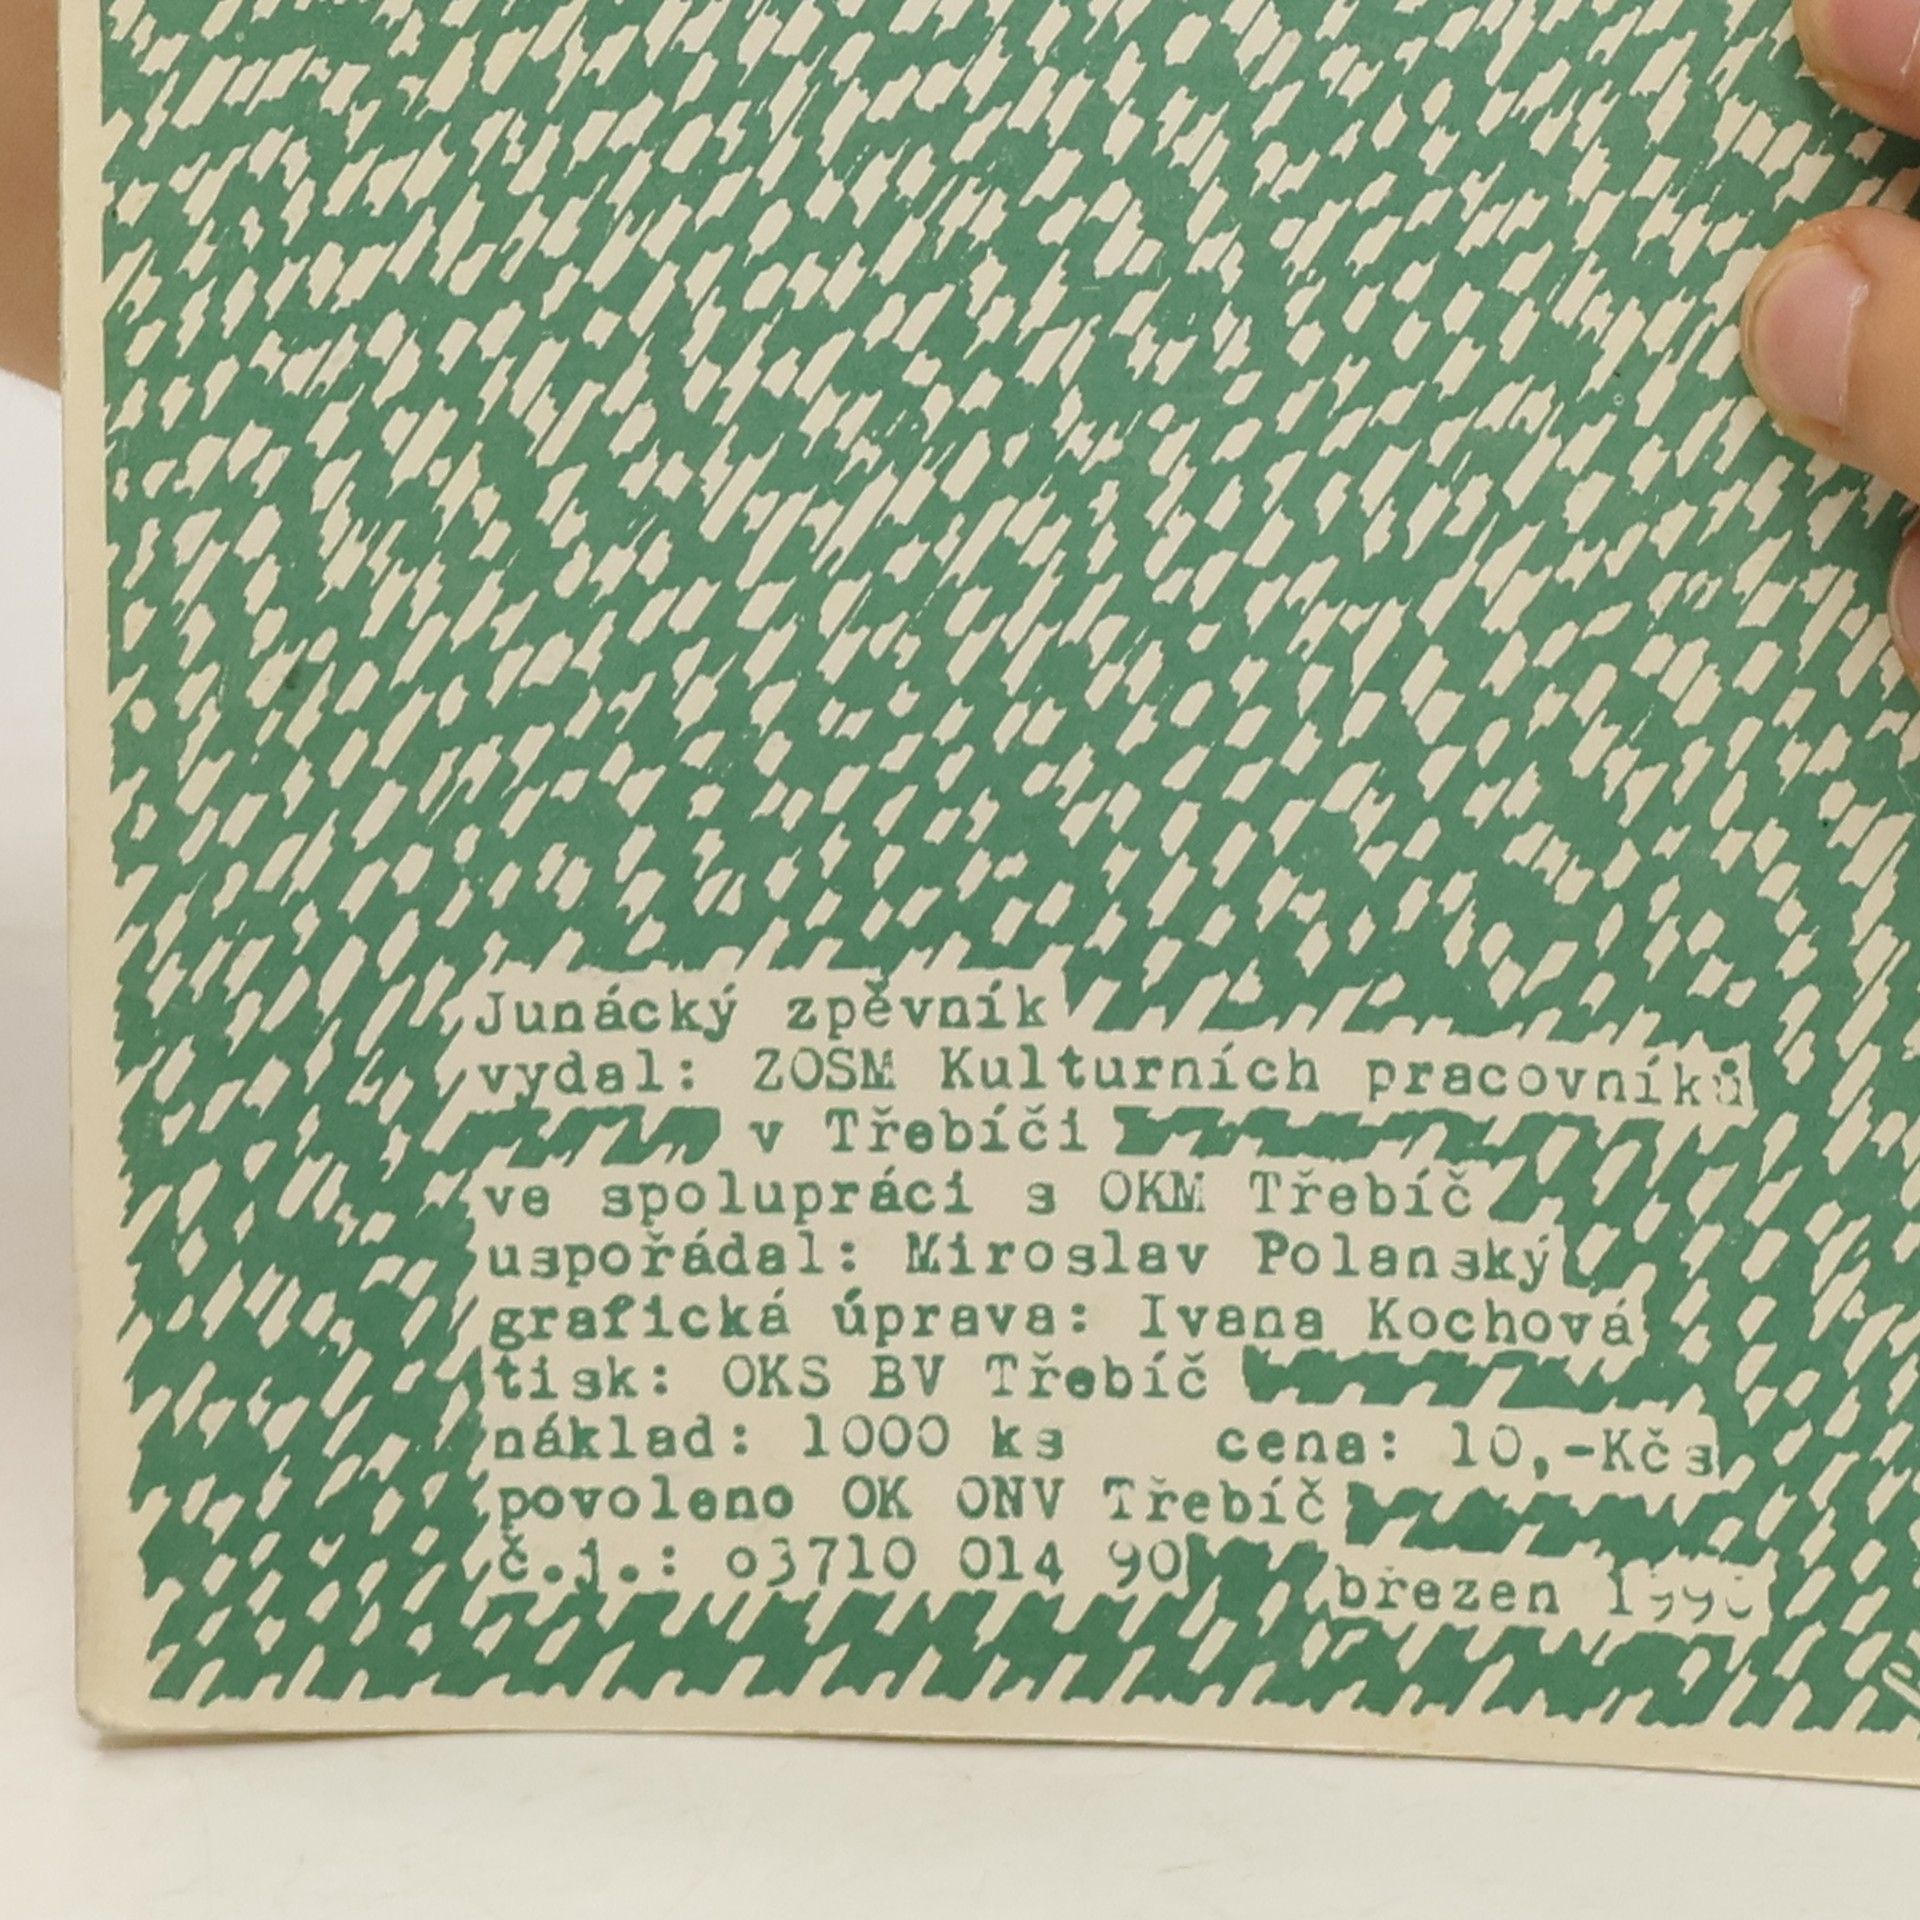 Junácký zpěvník
vydal: ZOSM Kulturních pracovníků
v Třebíči
ve spolupráci s OKM Třebíč
uspořádal: Miroslav Polanský
grafická úprava: Ivana Kochová
tisk: OKS BV Třebíč
náklad: 1000 ks cena: 10,-Kčs
povoleno OK ONV Třebíč
č.j.: 03710 014 90
březen 1990